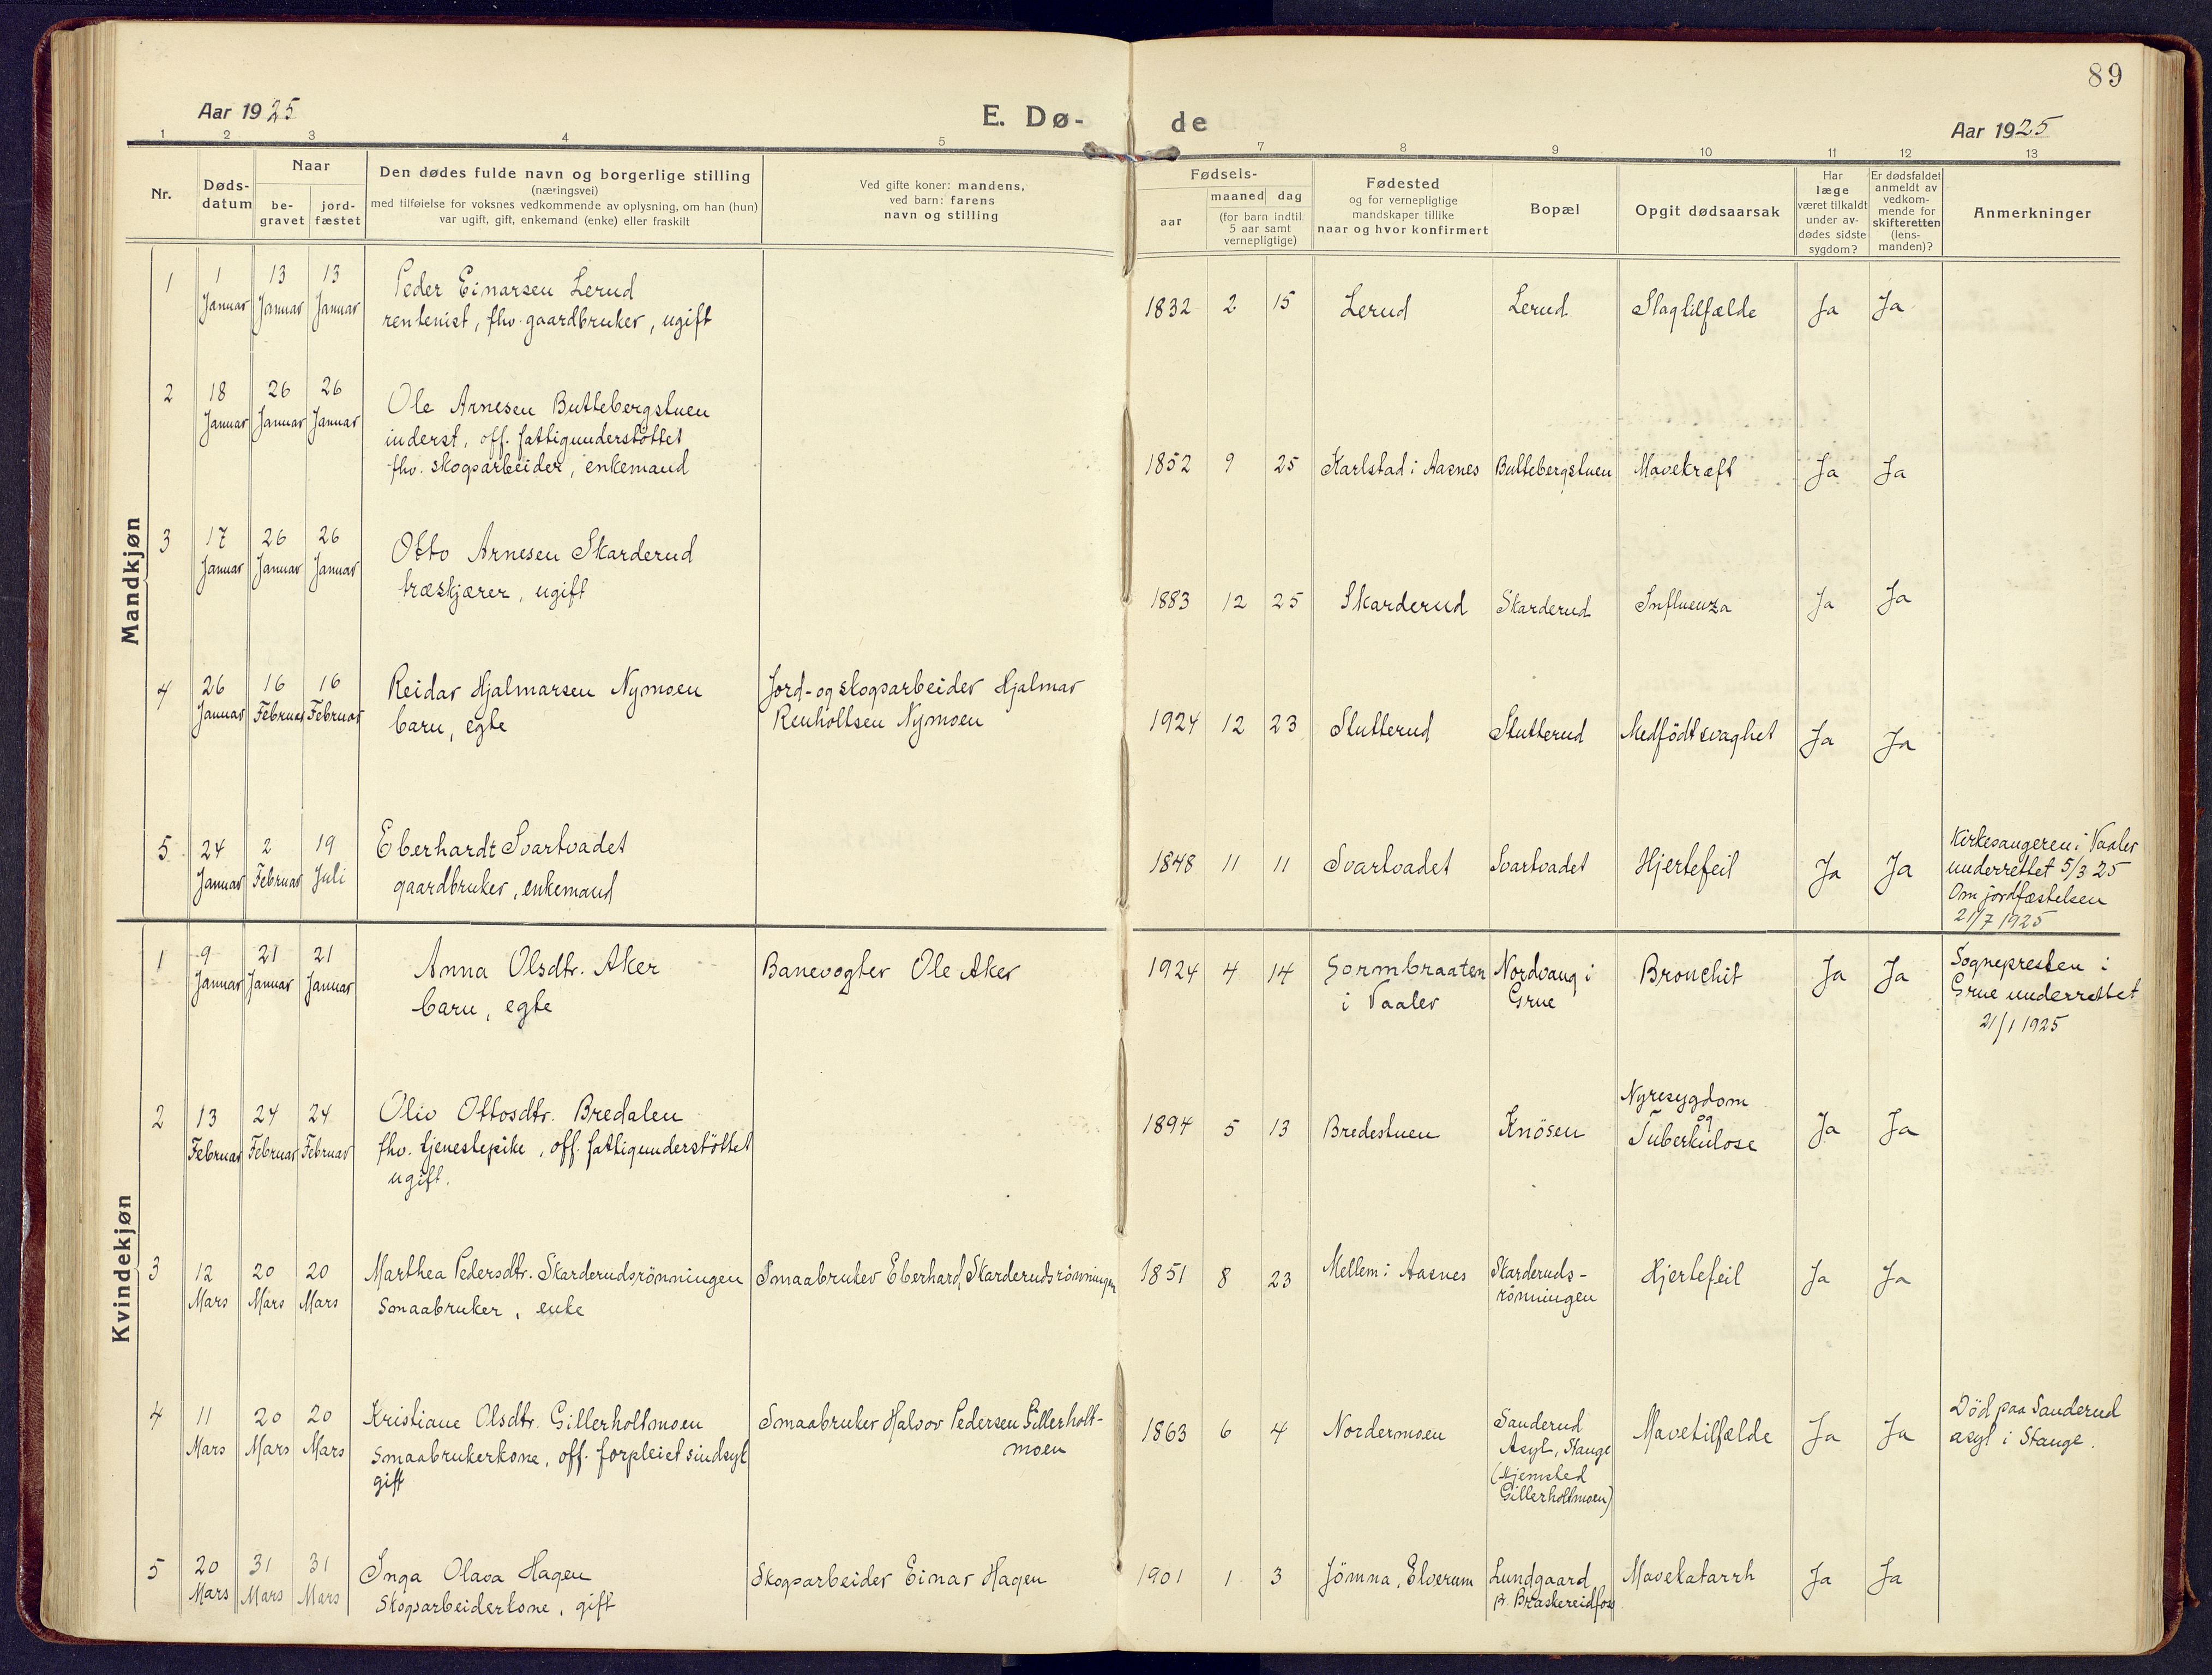 89
Aar 1925
E. Dø-
de
Aar 1925
1 2 3 4 5 7 8 9 10 11 12 13
Nr.
Døds-
datum
Naar
be-
gravet
jord-
fæstet
Den dødes fulde navn og borgerlige stilling
(næringsvei)
med tilføielse for voksnes vedkommende av oplysning, om han (hun)
var ugift, gift, enkemand (enke) eller fraskilt
Ved gifte koner: mandens,
ved barn: farens
navn og stilling
Fødsels-
aar
maaned dag
(for barn indtil
5 aar samt
vernepligtige)
Fødested
og for vernepligtige
mandskaper tillike
naar og hvor konfirmert
Bopæl
Opgit dødsaarsak
Har
læge
været tilkaldt
under av-
dødes sidste
sygdom?
Er dødsfaldet
anmeldt av
vedkom-
mende for
skifteretten
(lens-
manden)?
Anmerkninger
Mandkjøn
1
1 Januar
13 Januar
13 Januar
Peder Einarsen Lerud
rentenist, fhv. gaardbruker, ugift
1832 2 15
Lerud
Lerud
Slagtilfælde
Ja
Ja
2
18 Januar
26 Januar
26 Januar
Ole Arnesen Buttebergstuen
inderst, off. fattigunderstöttet
fhv. skogsarbeider, enkemand
1852 9 25
Karlstad i Aasnes
Buttebergstuen
Mavekræft
Ja
Ja
3
17 Januar
26 Januar
26 Januar
Otto Arnesen Skarderud
træskjærer, ugift
1883 12 25
Skarderud
Skarderud
Influenza
Ja
Ja
4
26 Januar
16 Februar
16 Februar
Reidar Hjalmarsen Nymoen
barn, egte
Jord- og skogsarbeider Hjalmar
Renholtsen Nymoen
1924 12 23
Slutterud
Slutterud
Medfödt svaghet
Ja
Ja
5
24 Januar
2 Februar
19 Juli
Eberhardt Svartvadet
gaardbruker, enkemand
1848 11 11
Svartvadet
Svartvadet
Hjertefeil
Ja
Ja
Kirkesangeren i Vaaler
underrettet 5/3 25
Om jordfæstelsen
21/7 1925
Kvindekjøn
1
9 Januar
21 Januar
21 Januar
Anna Olsdtr. Aker
barn, egte
Banevogter Ole Aker
1924 4 14
Gormbraaten
i Vaaler
Nordvang i
Grue
Bronchit
Ja
Ja
Sognepresten i
Grue underrettet
21/1 1925
2
13 Februar
24 Februar
24 Februar
Oliv Ottosdtr. Bredalen
fhv. tjenestepike, off. fattigunderstöttet
ugift.
1894 5 13
Bredestuen
Knösen
Nyresygdom
og
Tuberkulose
Ja
Ja
3
12 Mars
20 Mars
20 Mars
Marthea Pedersdtr. Skarderudsrönningen
Smaabruker, enke
Smaabruker Eberhard Skarderudsrönningen
1851 8 23
Mellem i Aasnes
Skarderuds-
rönningen
Hjertefeil
Ja
Ja
4
11 Mars
20 Mars
20 Mars
Kristiane Olsdtr. Gillerholtmoen
Smaabrukerkone, off. forpleiet sindsyk
gift
Smaabruker Halvor Pedersen Gillerholt-
moen
1863 6 4
Nordermoen
Sanderud
Asyl, Stange
(Hjemsted
Gillerholtmoen)
Mavetilfælde
Ja
Ja
Död paa Sanderud
asyl i Stange.
5
20 Mars
31 Mars
31 Mars
Inga Olava Hagen
Skogsarbeiderkone, gift
Skogsarbeider Einar Hagen
1901 1 3
Jömna, Elverum
Lundgaard
p. Braskereidfoss
Mavekatarrh
Ja
Ja